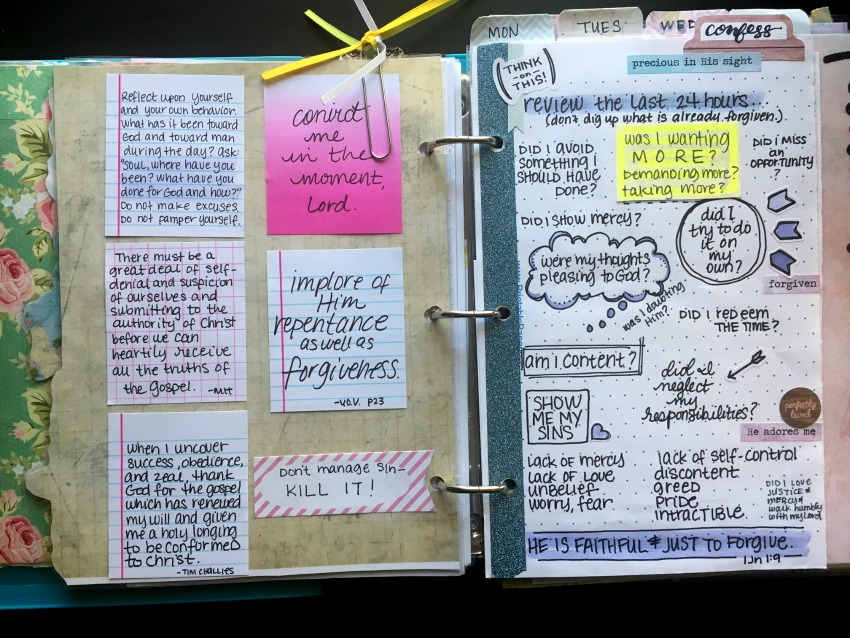 Reflect upon yourself
and your own behavior.
what has it been toward
God and toward man
during the day? Ask:
"Soul, where have you
been? what have you
done for God and how?"
Do not make excuses.
Do not pamper yourself.
There must be a
great deal of self-
denial and suspicion
of ourselves and
submitting to the
authority of Christ
before we can
heartily receive
all the truths of
the gospel. -MH
When I uncover
success, obedience,
and zeal, thank
God for the gospel
which has renewed
my will and given
me a holy longing
to be conformed
to Christ.
-TIM CHALLIES
convict
me
in the
moment,
Lord.
implore of
Him
repentance
as well as
forgiveness.
-V.O.V. p23
Don't manage sin-
KILL IT!
MON
TUES
WED
confess
precious in His sight
THINK
-on-
THIS!
review the last 24 hours...
(don't dig up what is already forgiven.)
DID I AVOID
SOMETHING I
SHOULD HAVE
DONE?
was I wanting
MORE?
Demanding more?
taking more?
DID I MISS
an
OPPORTUNITY
?
DID I SHOW MERCY?
did I
try to do
it on
my
own?
were my thoughts
pleasing to God?
was I doubting
Him?
forgiven
DID I redeem
THE TIME?
am I content?
did I
neglect
my
responsibilities?
SHOW
ME MY
SINS
perfectly
loved
He adores me
lack of mercy
lack of love
unbelief
worry, fear
lack of self-control
discontent
greed
Pride
intractible
DID I LOVE
JUSTICE &
MERCY &
walk humbly
with my Lord
HE IS FAITHFUL & JUST TO FORGIVE.
1Jn 1:9